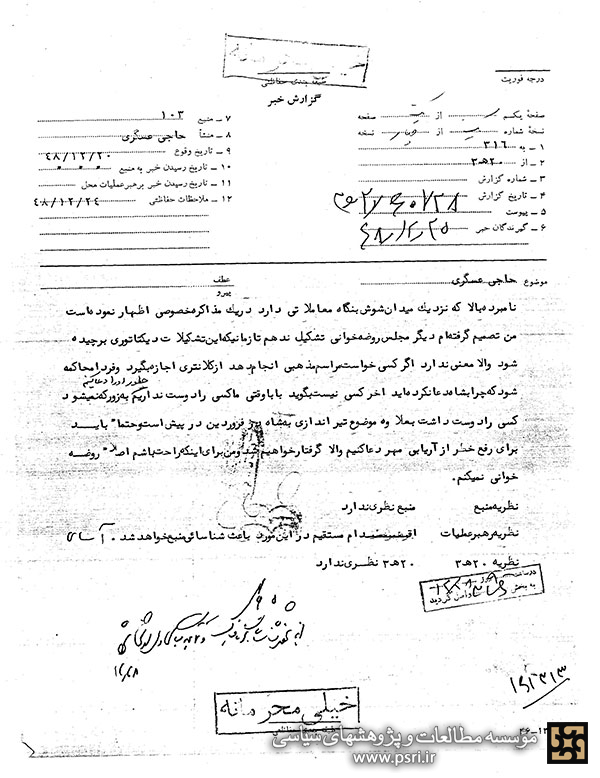 خیلی محرمانه
طبقه بندی حفاظتی
درجه فوریت
گزارش خبر
صفحهٔ یکم از یک صفحه
نسخهٔ شماره از نسخه
۱ - به ۳۱۶
۲ - از ۲۰ هـ ۳
۳ - شماره گزارش
۴ - تاریخ گزارش
۵ - پیوست
۶ - گیرندگان خبر
۷ - منبع ۱۰۳
۸ - منشأ حاجی عسگری
۹ - تاریخ وقوع ۴۸/۱۲/۲۰
۱۰ - تاریخ رسیدن خبر به منبع
۱۱ - تاریخ رسیدن خبر برهبر عملیات محل
۱۲ - ملاحظات حفاظتی ۴۸/۱۲/۲۴
موضوع حاجی عسگری
عطف
پیرو
نامبرده بالا که نزدیك میدان شوش بنگاه معاملاتی دارد دریك مذاکره خصوصی اظهار نموده است
من تصمیم گرفته ام دیگر مجلس روضه خوانی تشکیل ندهم تا زمانیکه این تشکیلات دیکتاتوری برچیده
شود والا معنی ندارد اگر کسی خواست مراسم مذهبی انجام دهد از کلانتری اجازه بگیرد و فردا محاکمه
شود که چرا بشاه دعا نکرده اید اخر کسی نیست بگوید بابا وقتی ما کسی را دوست نداریم چطور او را دعا کنیم بزور که نمیشود
کسی را دوست داشت بعلاوه موضوع تیراندازی به شاه فروردین در پیش است و حتماً باید
برای رفع خطر از آریایی مهر دعا کنیم والا گرفتار خواهیم شد و من برای اینکه راحت باشم اصلاً روضه
خوانی نمیکنم.
نظریه منبع منبع نظری ندارد
نظریه رهبر عملیات اقدام مستقیم در این مورد باعث شناسائی منبع خواهد شد.
نظریه ۲۰ هـ ۳ ۲۰ هـ ۳ نظری ندارد
خیلی محرمانه
موسسه مطالعات و پژوهشهای سیاسی
www.psri.ir